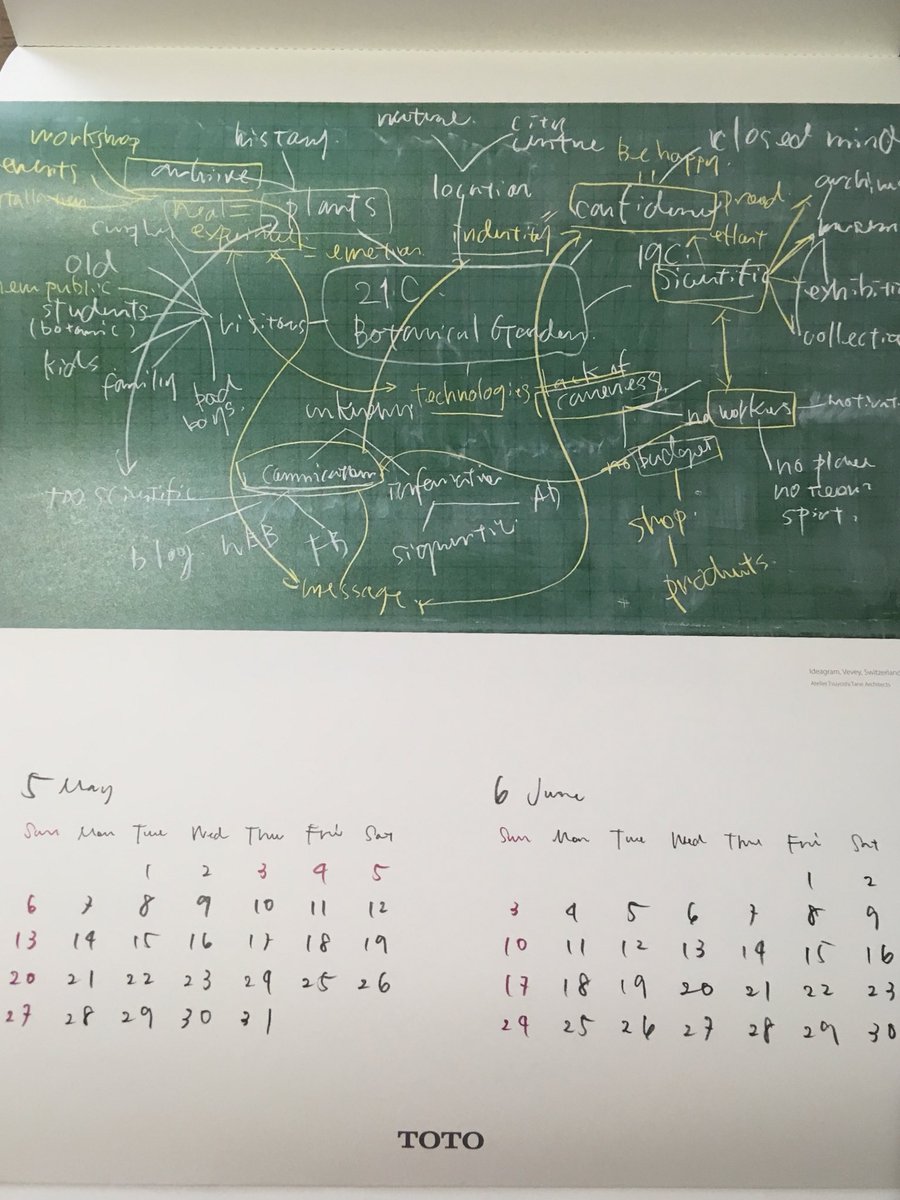 workshop
history
nature
city
centre
Be happy
closed mind
events
archive
location
plants
confidence
proud
real =
= emotion
identity
effort
19C
scientific
old
public
students
(botanic)
kids
family
bad
boys
visitors
21.C
Botanical Garden
exhibiti
collectio
unknown
technologies
lack of
no workers
motivat
no budget
too scientific
informative
AD
no place
no
spirt.
blog
WEB
FB
shop.
message
products.
Ideagram, Vevey, Switzerland
Atelier Tsuyoshi Tane Architects
5 May
Sun Mon Tue Wed Thu Fri Sat
1 2 3 4 5
6 7 8 9 10 11 12
13 14 15 16 17 18 19
20 21 22 23 24 25 26
27 28 29 30 31
6 June
Sun Mon Tue Wed Thu Fri Sat
1 2
3 4 5 6 7 8 9
10 11 12 13 14 15 16
17 18 19 20 21 22 23
24 25 26 27 28 29 30
TOTO